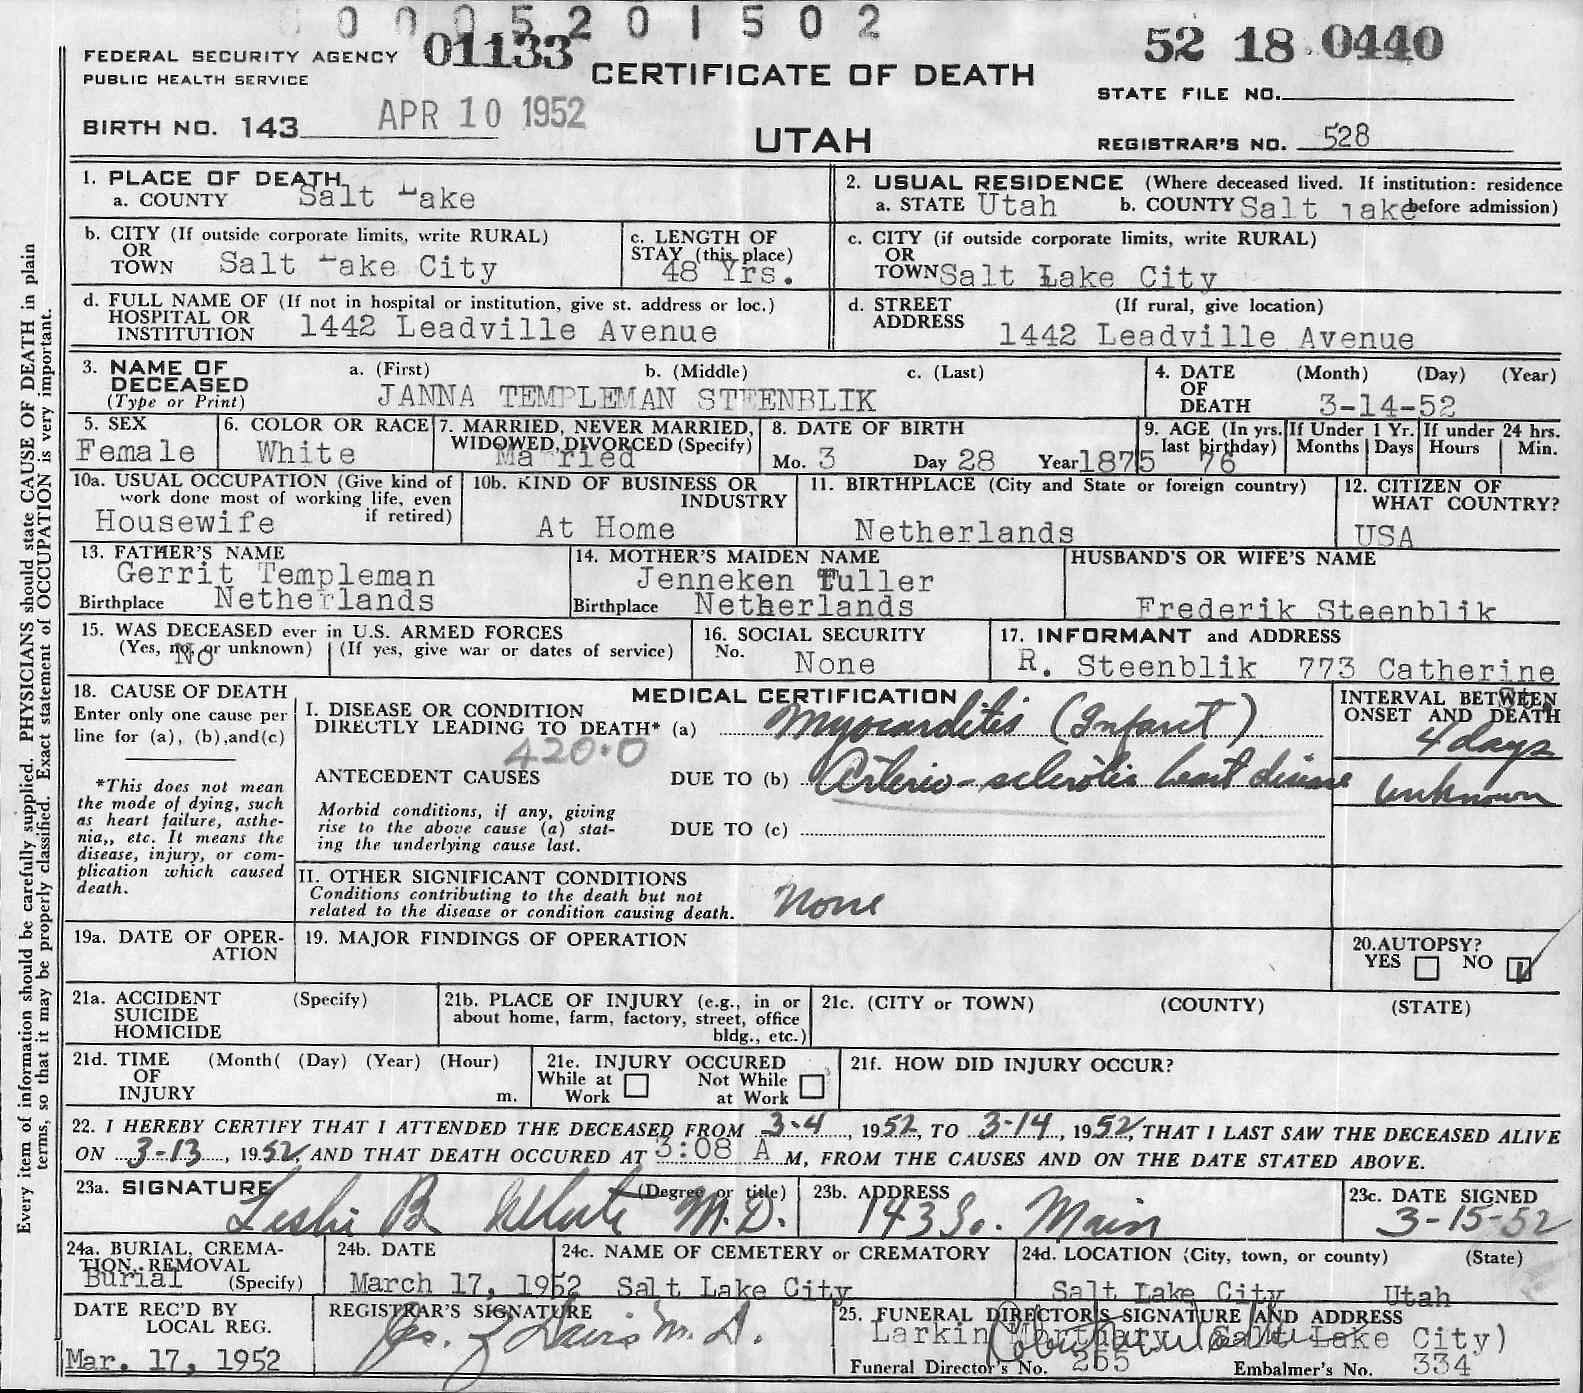 0005201502
FEDERAL SECURITY AGENCY
PUBLIC HEALTH SERVICE
01133
CERTIFICATE OF DEATH
52 18 0440
STATE FILE NO.
BIRTH NO. 143
APR 10 1952
UTAH
REGISTRAR'S NO. 528
1. PLACE OF DEATH
a. COUNTY Salt Lake
2. USUAL RESIDENCE (Where deceased lived. If institution: residence before admission)
a. STATE Utah b. COUNTY Salt Lake
b. CITY (If outside corporate limits, write RURAL)
OR
TOWN Salt Lake City
c. LENGTH OF
STAY (this place)
48 Yrs.
c. CITY (if outside corporate limits, write RURAL)
OR
TOWN Salt Lake City
d. FULL NAME OF (If not in hospital or institution, give st. address or loc.)
HOSPITAL OR
INSTITUTION 1442 Leadville Avenue
d. STREET (If rural, give location)
ADDRESS 1442 Leadville Avenue
3. NAME OF
DECEASED
(Type or Print)
a. (First) b. (Middle) c. (Last)
JANNA TEMPLEMAN STEENBLIK
4. DATE (Month) (Day) (Year)
OF
DEATH 3-14-52
5. SEX
Female
6. COLOR OR RACE
White
7. MARRIED, NEVER MARRIED,
WIDOWED, DIVORCED (Specify)
Married
8. DATE OF BIRTH
Mo. 3 Day 28 Year 1875
9. AGE (In yrs.
last birthday)
76
If Under 1 Yr.
Months Days
If under 24 hrs.
Hours Min.
10a. USUAL OCCUPATION (Give kind of
work done most of working life, even
if retired)
Housewife
10b. KIND OF BUSINESS OR
INDUSTRY
At Home
11. BIRTHPLACE (City and State or foreign country)
Netherlands
12. CITIZEN OF
WHAT COUNTRY?
USA
13. FATHER'S NAME
Gerrit Templeman
Birthplace Netherlands
14. MOTHER'S MAIDEN NAME
Jenneken Tuller
Birthplace Netherlands
HUSBAND'S OR WIFE'S NAME
Frederik Steenblik
15. WAS DECEASED ever in U.S. ARMED FORCES
(Yes, no, or unknown) (If yes, give war or dates of service)
No
16. SOCIAL SECURITY
No. None
17. INFORMANT and ADDRESS
R. Steenblik 773 Catherine
18. CAUSE OF DEATH
Enter only one cause per
line for (a), (b),and(c)
*This does not mean
the mode of dying, such
as heart failure, asthe-
nia,, etc. It means the
disease, injury, or com-
plication which caused
death.
MEDICAL CERTIFICATION
I. DISEASE OR CONDITION
DIRECTLY LEADING TO DEATH* (a) Myocarditis (Infarct)
420.0
ANTECEDENT CAUSES DUE TO (b) Arterio-sclerotic heart disease
Morbid conditions, if any, giving
rise to the above cause (a) stat-
ing the underlying cause last.
DUE TO (c)
INTERVAL BETWEEN
ONSET AND DEATH
4 days
unknown
II. OTHER SIGNIFICANT CONDITIONS
Conditions contributing to the death but not
related to the disease or condition causing death.
None
19a. DATE OF OPER-
ATION
19. MAJOR FINDINGS OF OPERATION
20.AUTOPSY?
YES NO
21a. ACCIDENT (Specify)
SUICIDE
HOMICIDE
21b. PLACE OF INJURY (e.g., in or
about home, farm, factory, street, office
bldg., etc.)
21c. (CITY or TOWN) (COUNTY) (STATE)
21d. TIME (Month( (Day) (Year) (Hour)
OF
INJURY m.
21e. INJURY OCCURED
While at Work Not While at Work
21f. HOW DID INJURY OCCUR?
22. I HEREBY CERTIFY THAT I ATTENDED THE DECEASED FROM 3-4, 1952, TO 3-14, 1952, THAT I LAST SAW THE DECEASED ALIVE
ON 3-13, 1952, AND THAT DEATH OCCURED AT 3:08 A M, FROM THE CAUSES AND ON THE DATE STATED ABOVE.
23a. SIGNATURE (Degree or title)
Leslie B White M.D.
23b. ADDRESS
143 So. Main
23c. DATE SIGNED
3-15-52
24a. BURIAL, CREMA-
TION, REMOVAL
Burial (Specify)
24b. DATE
March 17, 1952
24c. NAME OF CEMETERY or CREMATORY
Salt Lake City
24d. LOCATION (City, town, or county) (State)
Salt Lake City Utah
DATE REC'D BY
LOCAL REG.
Mar. 17, 1952
REGISTRAR'S SIGNATURE
25. FUNERAL DIRECTOR'S SIGNATURE AND ADDRESS
Larkin Mortuary (Salt Lake City)
Funeral Director's No. 265 Embalmer's No. 334
Every item of information should be carefully supplied. PHYSICIANS should state CAUSE OF DEATH in plain
terms, so that it may be properly classified. Exact statement of OCCUPATION is very important.